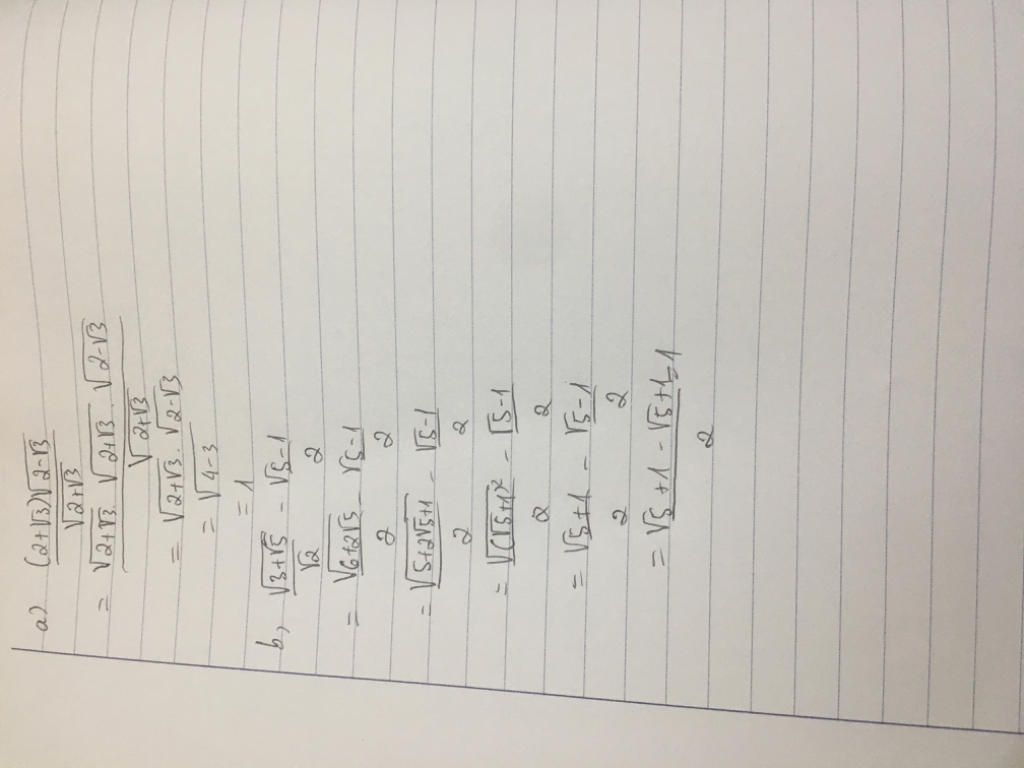 a) (2+√3)√(2-√3) / √(2+√3)
= √(2+√3) . √(2+√3) . √(2-√3) / √(2+√3)
= √(2+√3) . √(2-√3)
= √(4-3)
= 1
b, √(3+√5) / √2 - (√5-1) / 2
= √(6+2√5) / 2 - (√5-1) / 2
= √(5+2√5+1) / 2 - (√5-1) / 2
= √((√5+1)²) / 2 - (√5-1) / 2
= (√5+1) / 2 - (√5-1) / 2
= (√5+1-√5+1) / 2 = 1